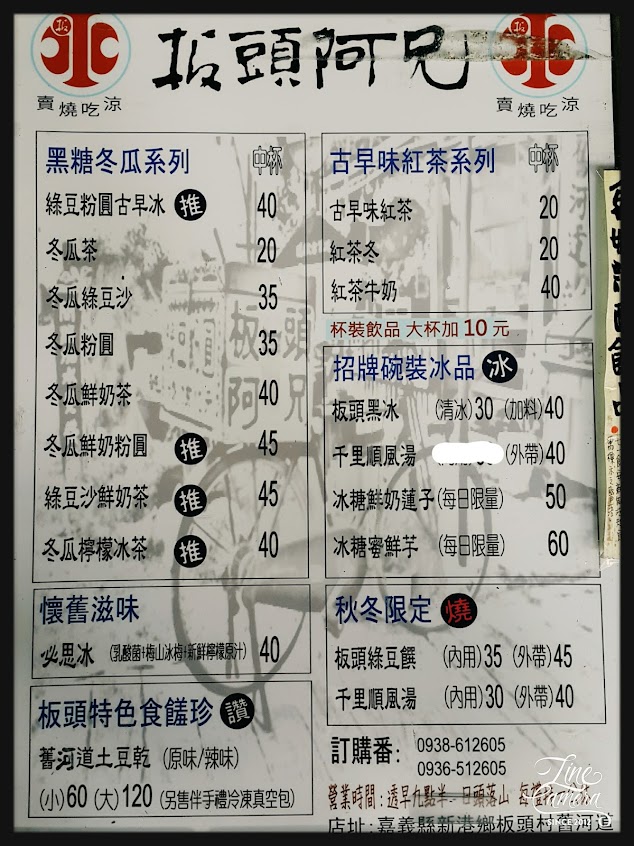 板頭阿兄
賣燒吃涼
賣燒吃涼
黑糖冬瓜系列 中杯
綠豆粉圓古早冰 推 40
冬瓜茶 20
冬瓜綠豆沙 35
冬瓜粉圓 35
冬瓜鮮奶茶 40
冬瓜鮮奶粉圓 推 45
綠豆沙鮮奶茶 推 45
冬瓜檸檬冰茶 推 40
懷舊滋味
必思冰 (乳酸菌+梅山冰梅+新鮮檸檬原汁) 40
板頭特色食饈珍 讚
舊河道土豆乾 (原味/辣味)
(小)60 (大)120 (另售伴手禮冷凍真空包)
古早味紅茶系列 中杯
古早味紅茶 20
紅茶冬 20
紅茶牛奶 40
杯裝飲品 大杯加10元
招牌碗裝冰品 冰
板頭黑冰 (清冰)30 (加料)40
千里順風湯 (外帶)40
冰糖鮮奶蓮子(每日限量) 50
冰糖蜜鮮芋 (每日限量) 60
秋冬限定 燒
板頭綠豆饌 (內用)35 (外帶)45
千里順風湯 (內用)30 (外帶)40
訂購番: 0938-612605
0936-512605
營業時間:透早九點半-日頭落山
店址:嘉義縣新港鄉板頭村舊河道
板頭
阿兄